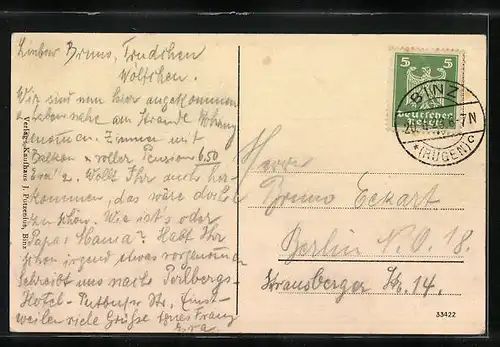 Lieber Bruno, Trudchen
Wölfchen.
Wir sind nun hier angekommen
haben nahe am Strande Wohng
genommen. Zimmer mit
Balkon u. voller Pension 6,50
Wollt Ihr auch her-
kommen, das wäre doch
zu schön. Wie ist's oder
Papa, Mama? Habt Ihr
schon irgend etwas vorgenommen
Schreibt uns nach
Hotel- Putbuser Str. Einst-
weilen viele Grüße
Verlag: Kaufhaus J. Putzenius, Binz
5 5
Deutsches
Reich
BINZ
7N
*(RÜGEN)c
Herrn
Bruno Eckart
Berlin N.O. 18.
Strausberger Str. 14.
33422